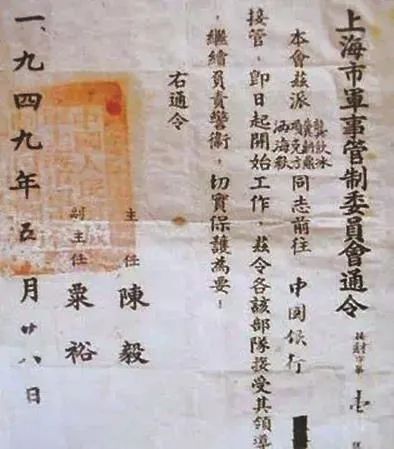 上海市軍事管制委員會通令 字第 壹 號
本會茲派 龔飲冰 項克方 海秋 同志前往 中國銀行
接管，即日起開始工作，茲令各該部隊接受其領導
，繼續負責警衛，切實保護為要！
右通令
主任 陳毅
副主任 粟裕
一、九四九年五月廿八日
中國人民